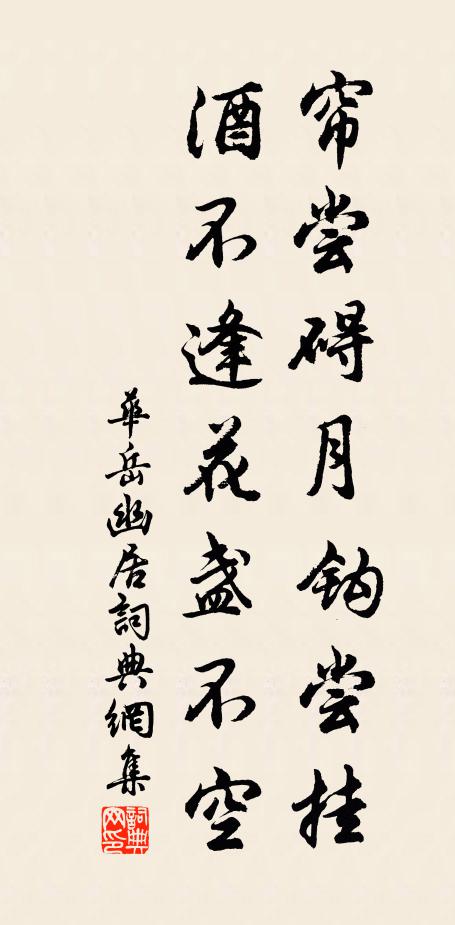 帘尝碍月钩尝挂
酒不逢花盏不空
華岳幽居詞典網集
詞典网印